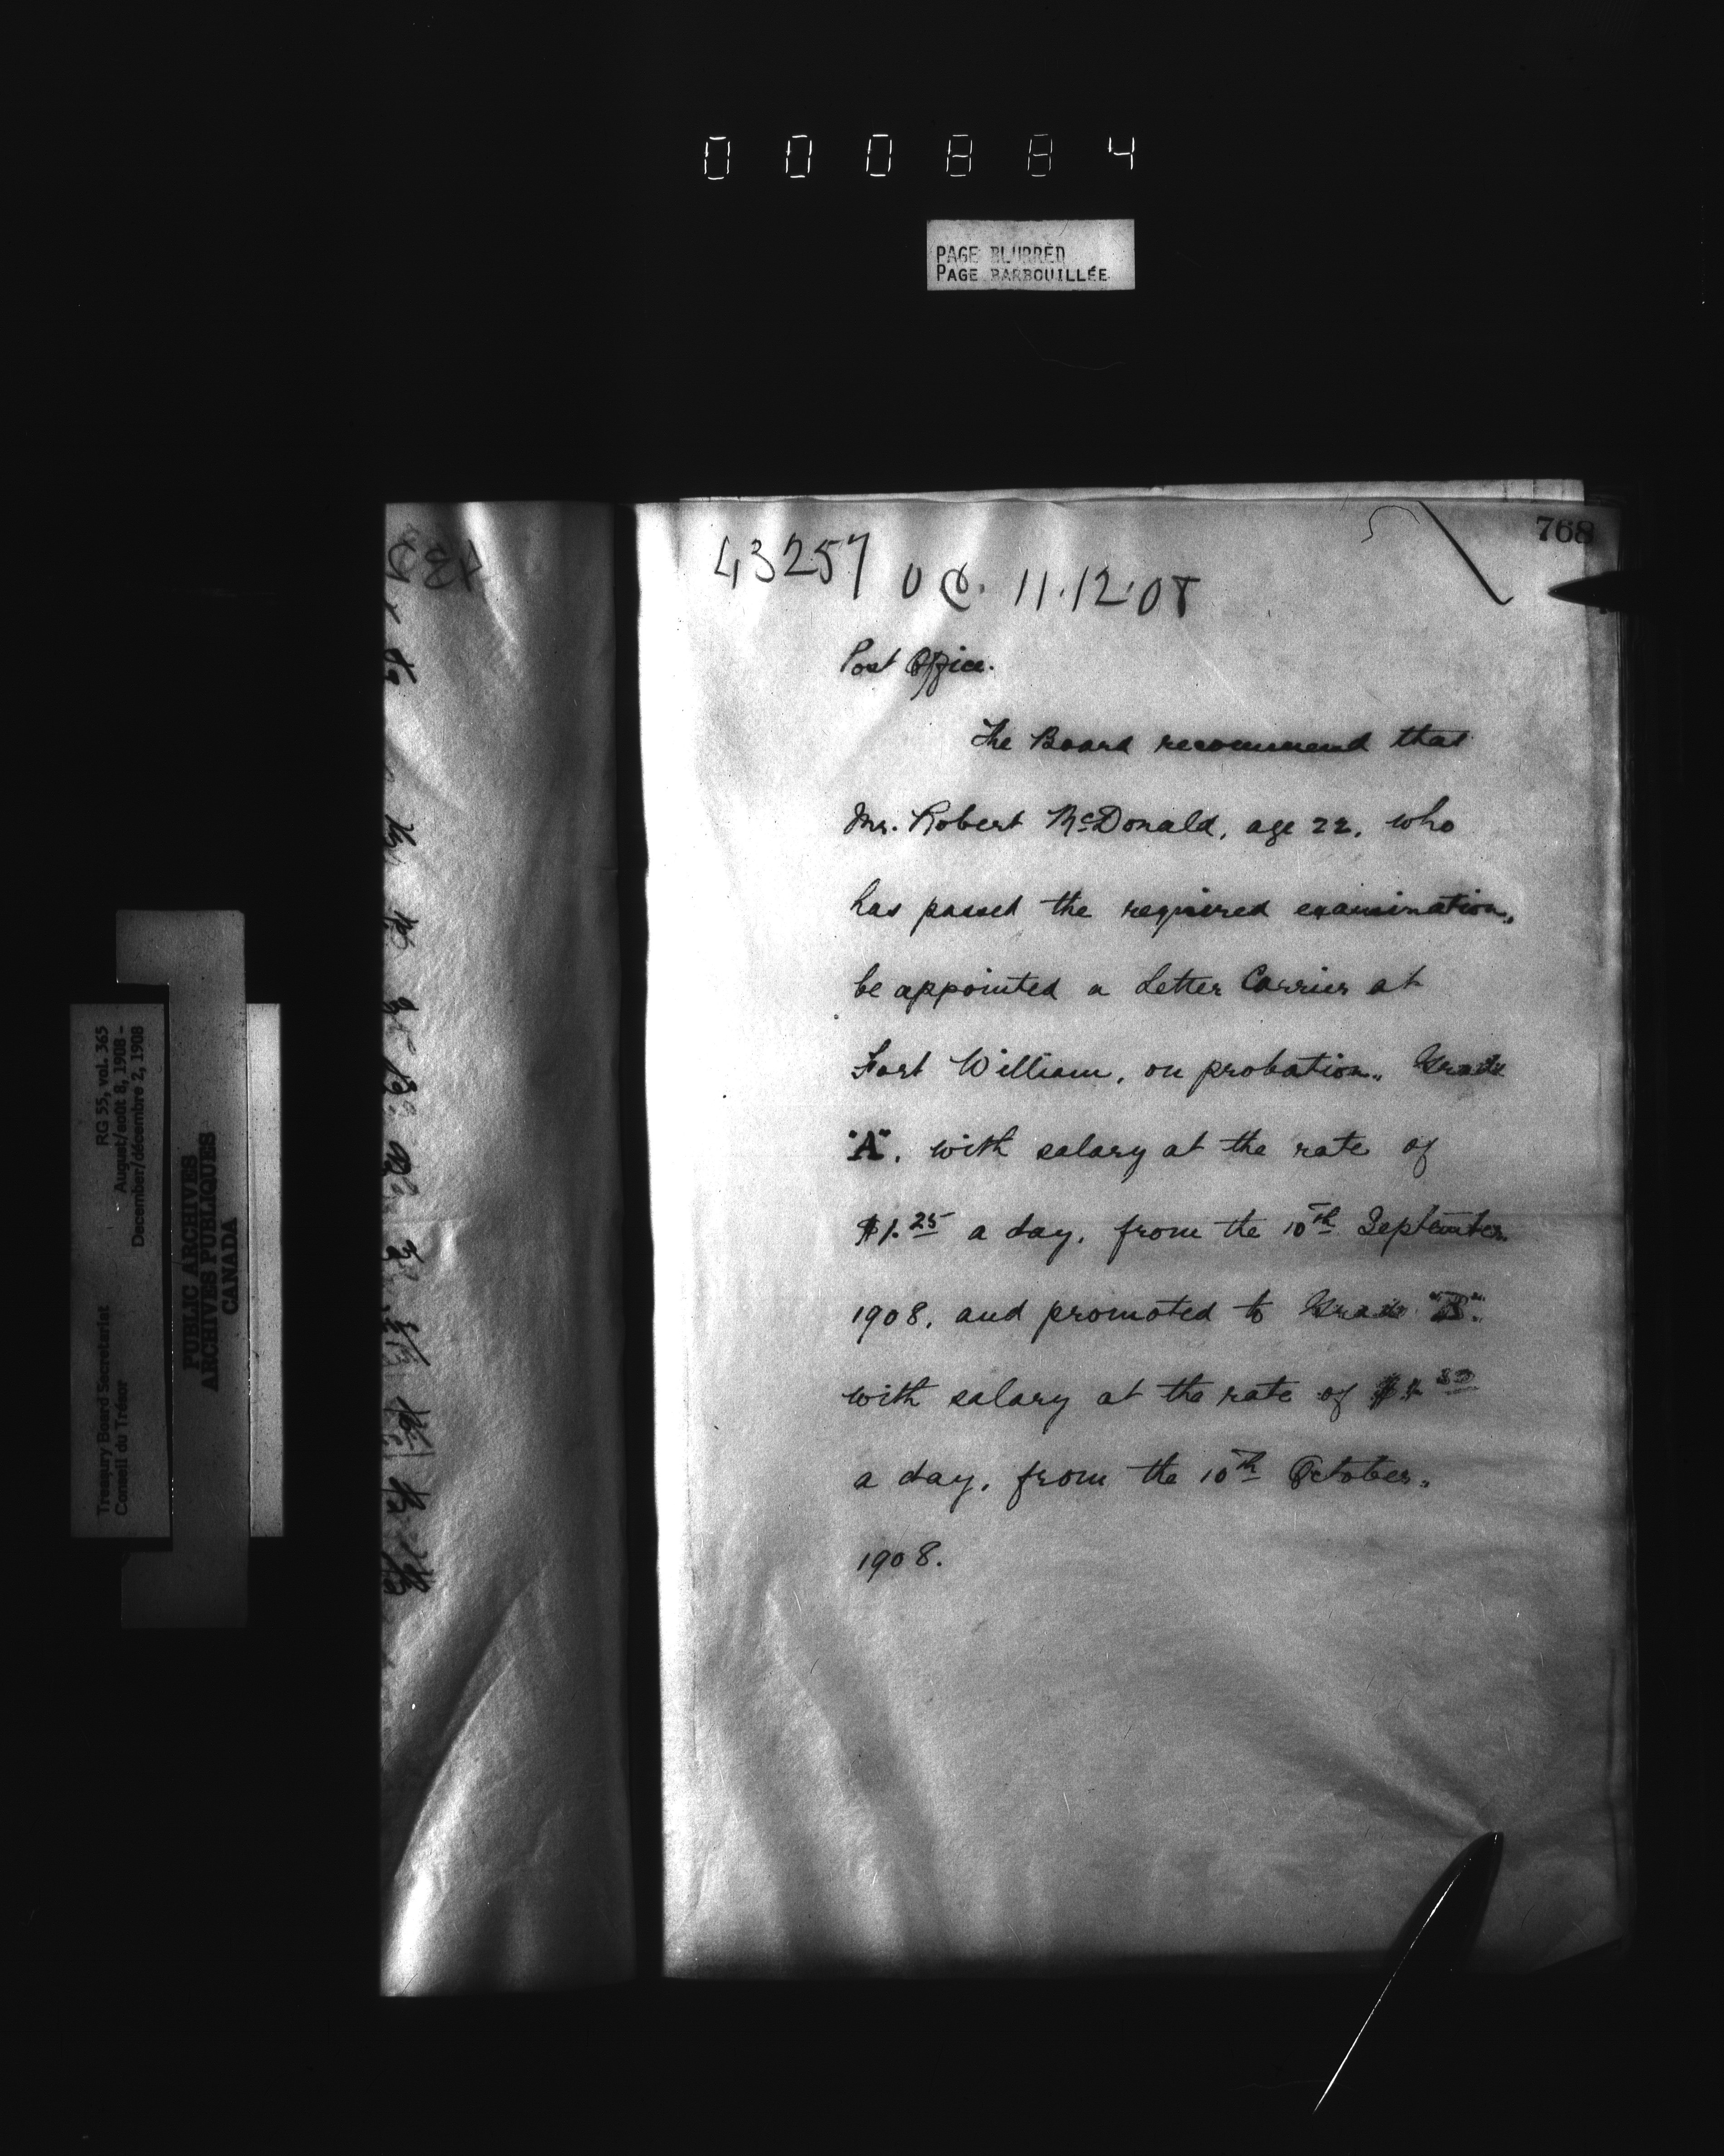 000884
PAGE BLURRED
PAGE BARBOUILLÉE
768
43257 O C. 11.12.08
Post Office.
The Board recommend that
Mr. Robert McDonald, age 22, who
has passed the required examination,
be appointed a Letter Carrier at
Fort William, on probation, Grade
"A", with salary at the rate of
$1.25 a day, from the 10th September
1908, and promoted to Grade "B",
with salary at the rate of
a day, from the 10th October,
1908.
RG 55, vol. 365
August/août 8, 1908 –
December/décembre 2, 1908
Treasury Board Secretariat
Conseil du Trésor
PUBLIC ARCHIVES
ARCHIVES PUBLIQUES
CANADA